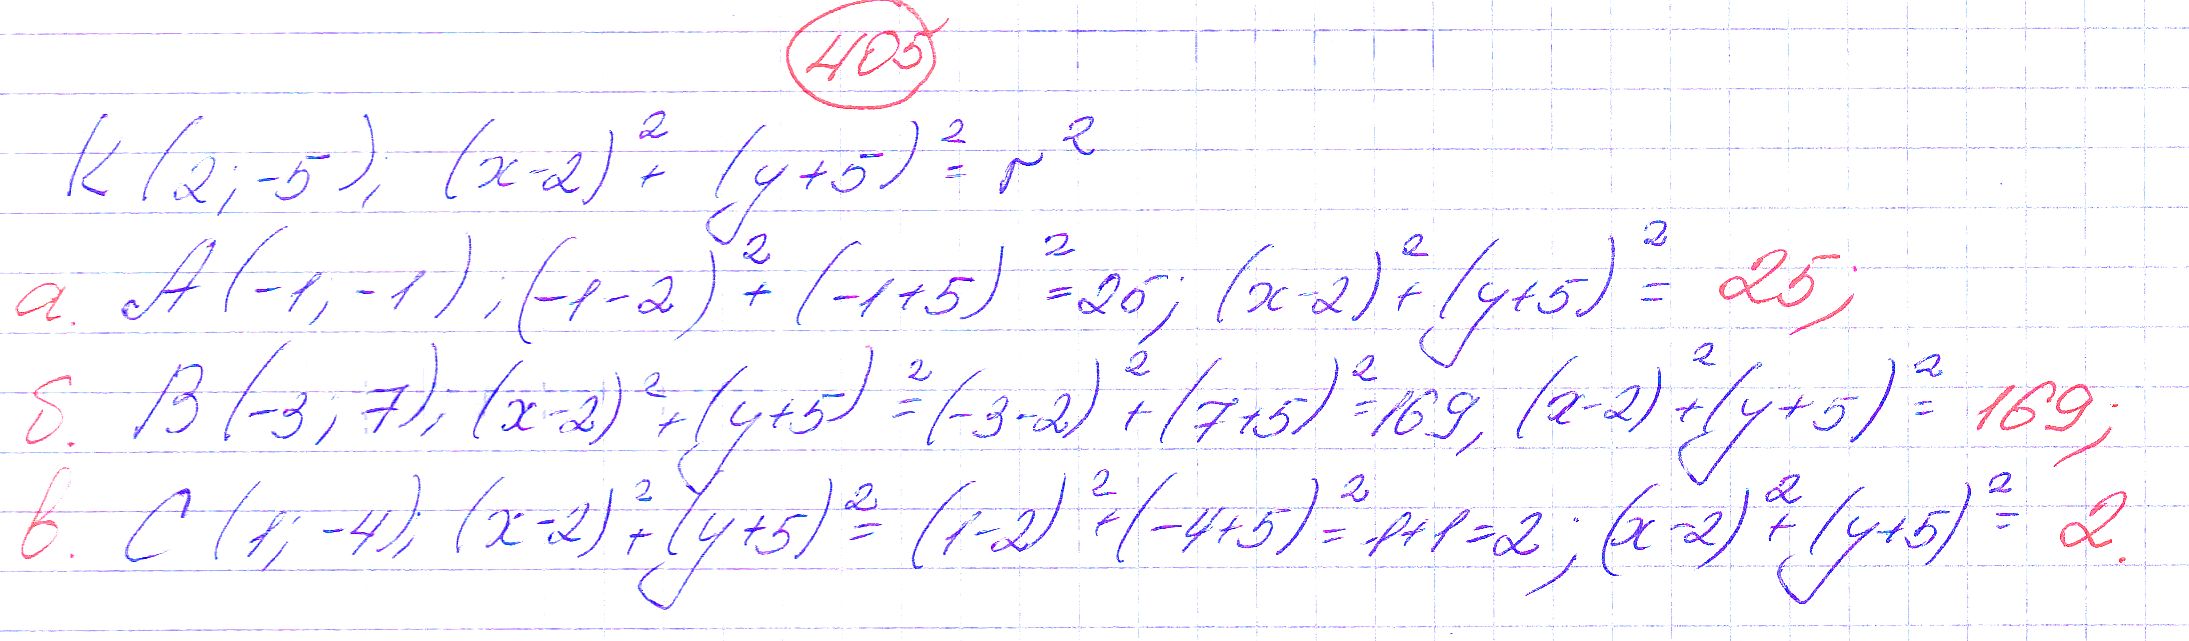 405
K (2; -5); (x-2)² + (y+5)² = r²
а. A (-1; -1); (-1-2)² + (-1+5)² = 25; (x-2)² + (y+5)² = 25;
б. B (-3; 7); (x-2)² + (y+5)² = (-3-2)² + (7+5)² = 169, (x-2)² + (y+5)² = 169;
в. C (1; -4); (x-2)² + (y+5)² = (1-2)² + (-4+5)² = 1+1=2; (x-2)² + (y+5)² = 2.